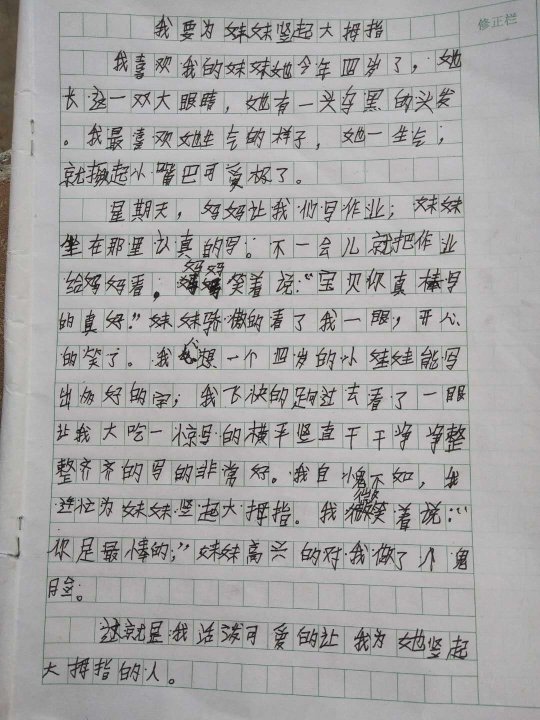 修正栏
我要为妹妹竖起大拇指
我喜欢我的妹妹她今年四岁了，她
长这一双大眼睛，她有一头乌黑的头发
。我最喜欢她生气的样子，她一生气，
就撅起小嘴巴可爱极了。
星期天，妈妈让我们写作业；妹妹
坐在那里认真的写。不一会儿就把作业
给妈妈看，妈妈笑着说：“宝贝你真棒写
的真好。”妹妹骄傲的看了我一眼，开心
的笑了。我心想一个四岁的小娃娃能写
出多好的字；我飞快的跑过去看了一眼
让我大吃一惊写的横平竖直干干净净整
整齐齐的写的非常好。我自愧不如，我
连忙为妹妹竖起大拇指。我微笑着说：“
你是最棒的；”妹妹高兴的对我做了个鬼
脸。
这就是我活泼可爱的让我为她竖起
大拇指的人。